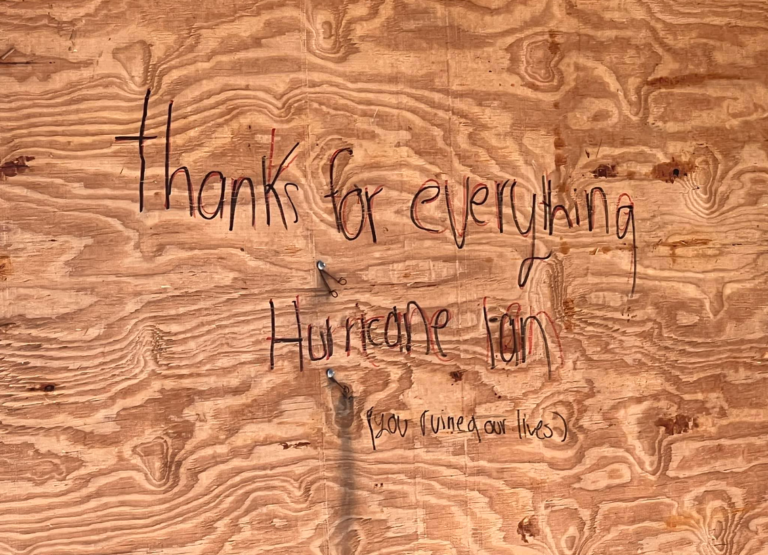 thanks for everything
Hurricane Ian
(you ruined our lives)